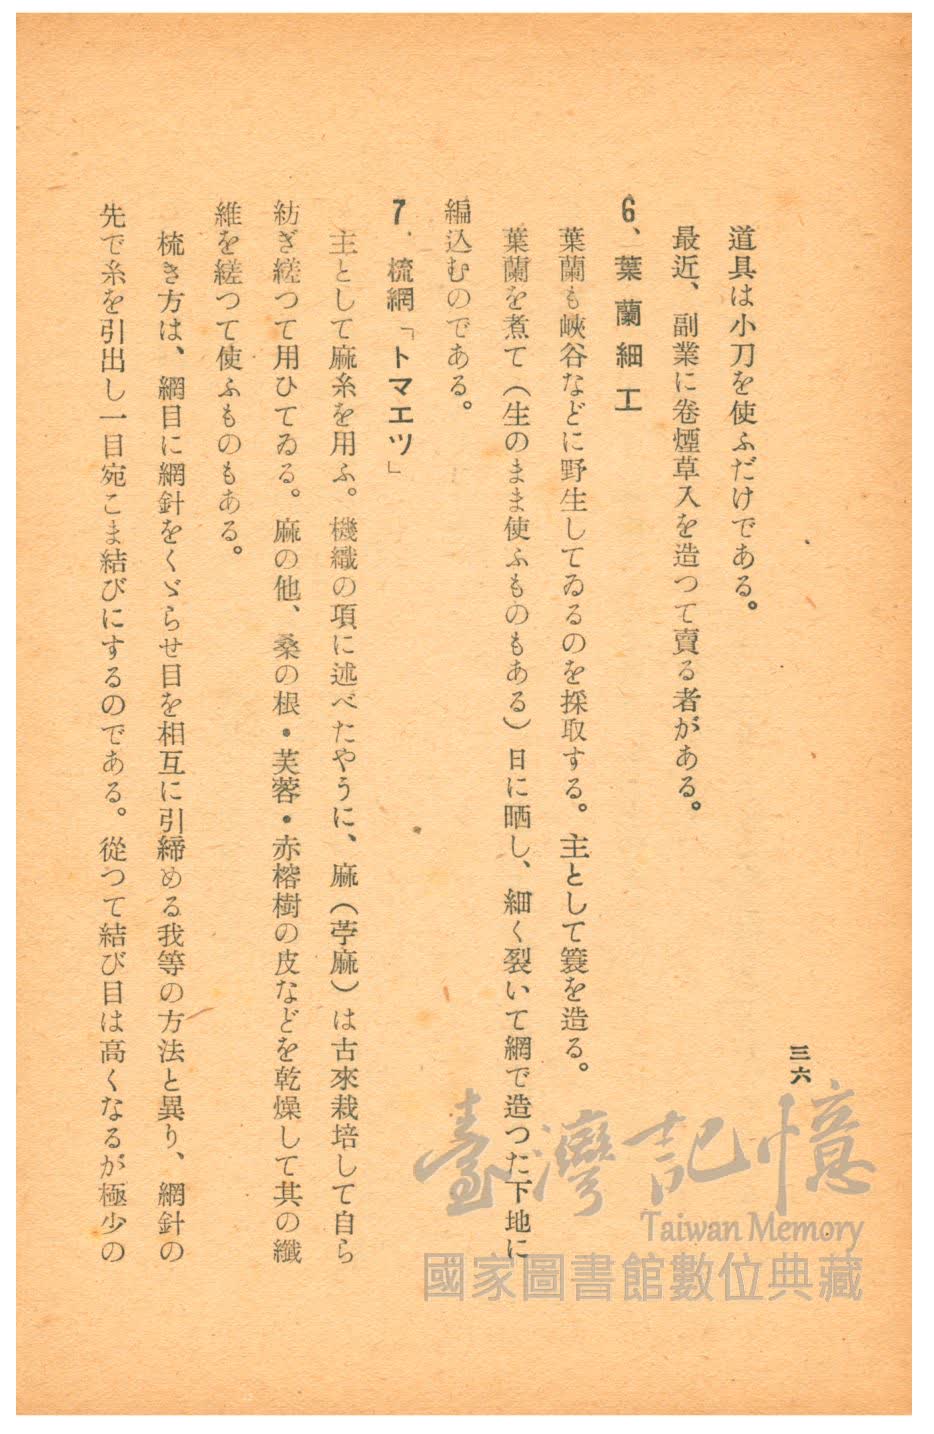 三六
道具は小刀を使ふだけである。
最近、副業に卷煙草入を造つて賣る者がある。
6、葉蘭細工
葉蘭も峽谷などに野生してゐるのを採取する。主として簑を造る。
葉蘭を煮て（生のまま使ふものもある）日に晒し、細く裂いて網で造つた下地に
編込むのである。
7. 梳網「トマエツ」
主として麻糸を用ふ。機織の項に述べたやうに、麻（苧麻）は古來栽培して自ら
紡ぎ縒つて用ひてゐる。麻の他、桑の根・芙蓉・赤榕樹の皮などを乾燥して其の纖
維を縒つて使ふものもある。
梳き方は、網目に網針をくゞらせ目を相互に引締める我等の方法と異り、網針の
先で糸を引出し一目宛こま結びにするのである。從つて結び目は高くなるが極少の
臺灣記憶
Taiwan Memory
國家圖書館數位典藏